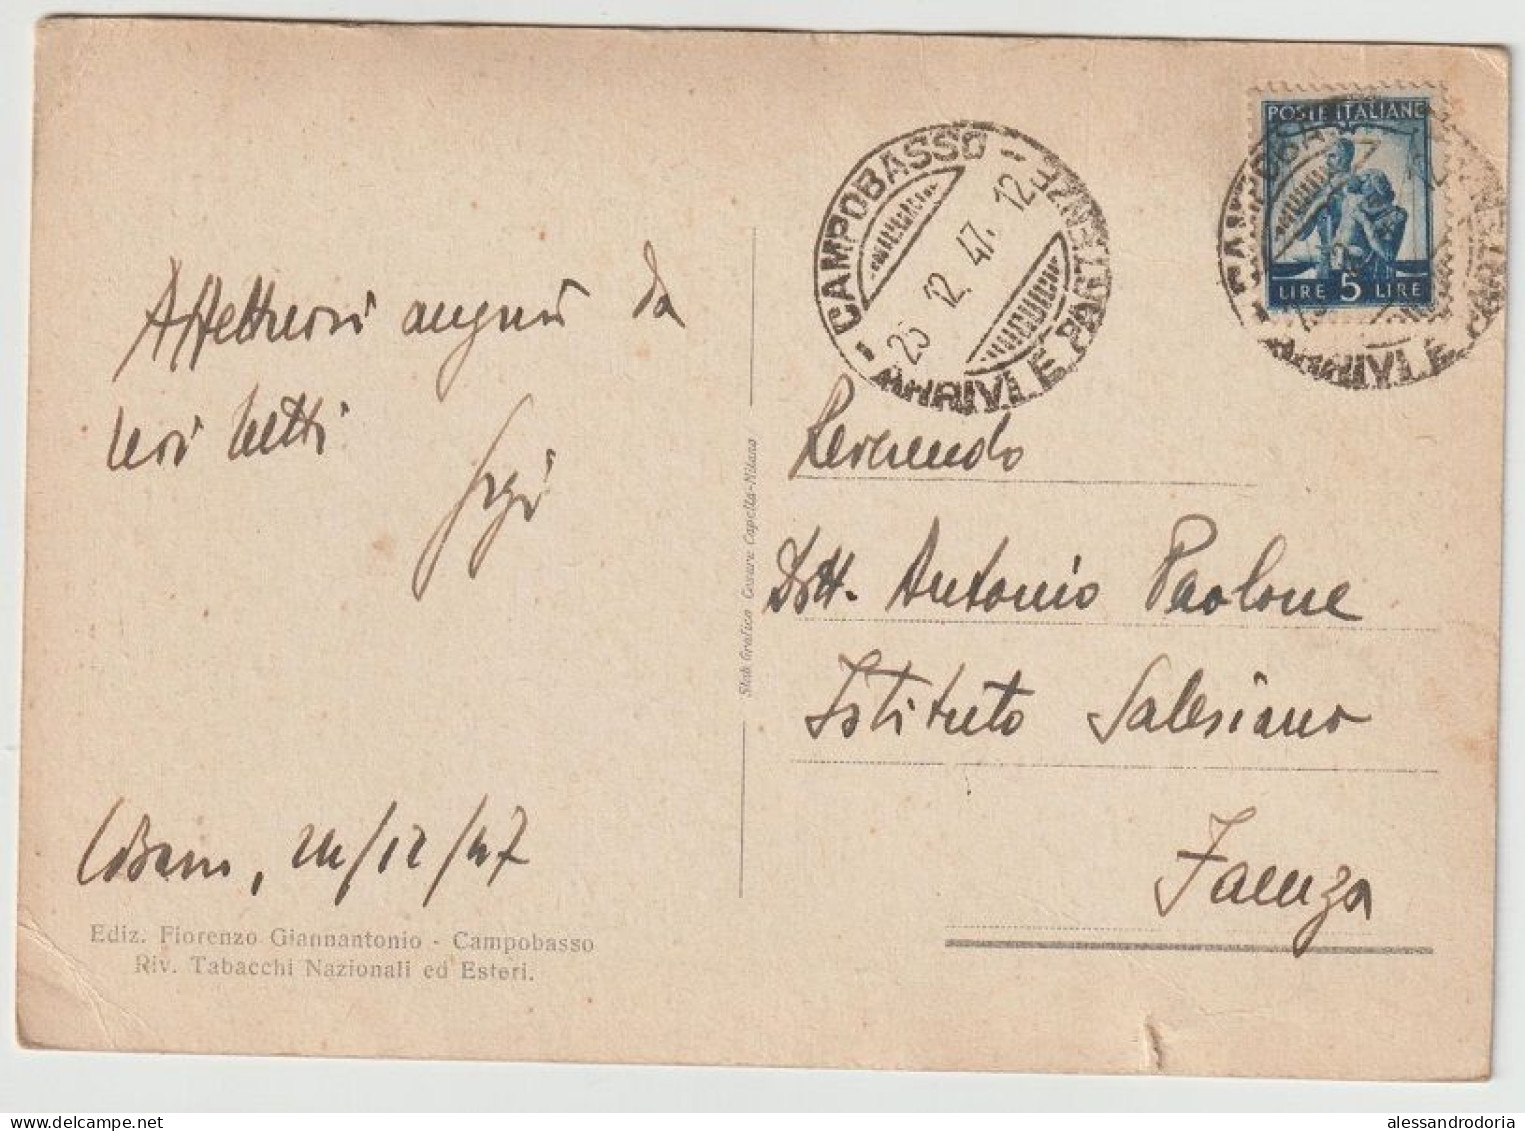 POSTE ITALIANE
LIRE 5 LIRE
CAMPOBASSO -
- ARRIVI E PARTENZE
25 12 47. 12
Affettuosi auguri da
noi tutti
Reverendo
Dott. Antonio Paolone
Istituto Salesiano
Faenza
24/12/47
Ediz. Fiorenzo Giannantonio - Campobasso
Riv. Tabacchi Nazionali ed Esteri.
Stab. Grafico Cesare Capella - Milano
delcampe.net
alessandrodoria